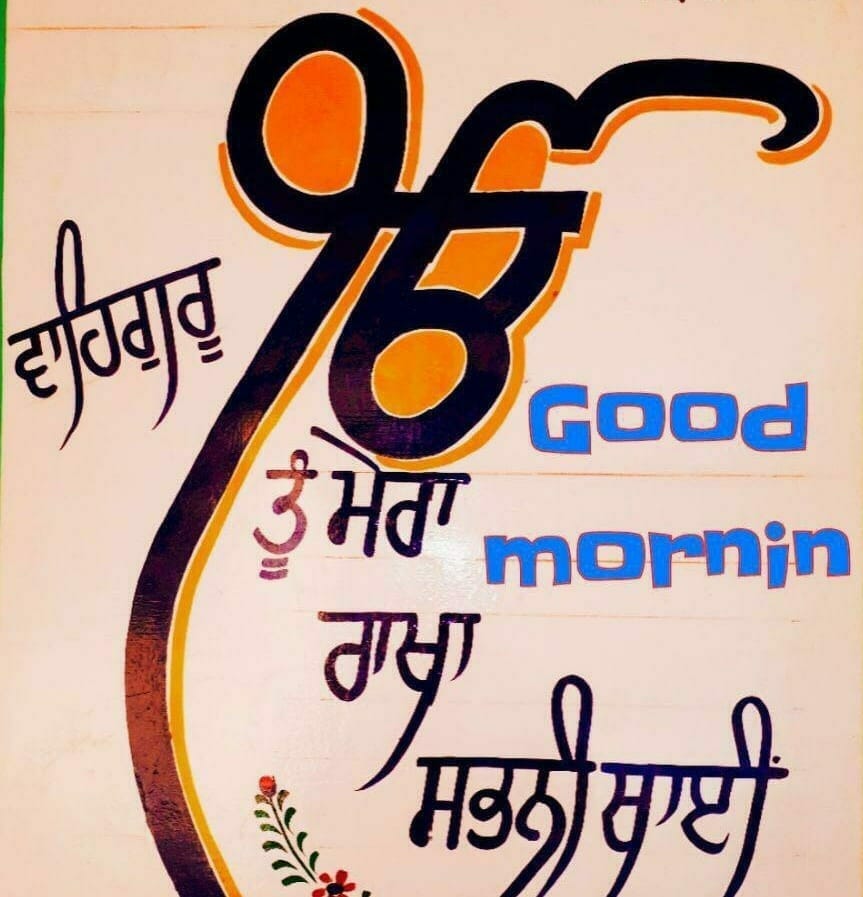 ੴ
ਵਾਹਿਗੁਰੂ
Good
ਤੂੰ ਮੇਰਾ
mornin
ਰਾਖਾ
ਸਭਨੀ ਥਾਈਂ